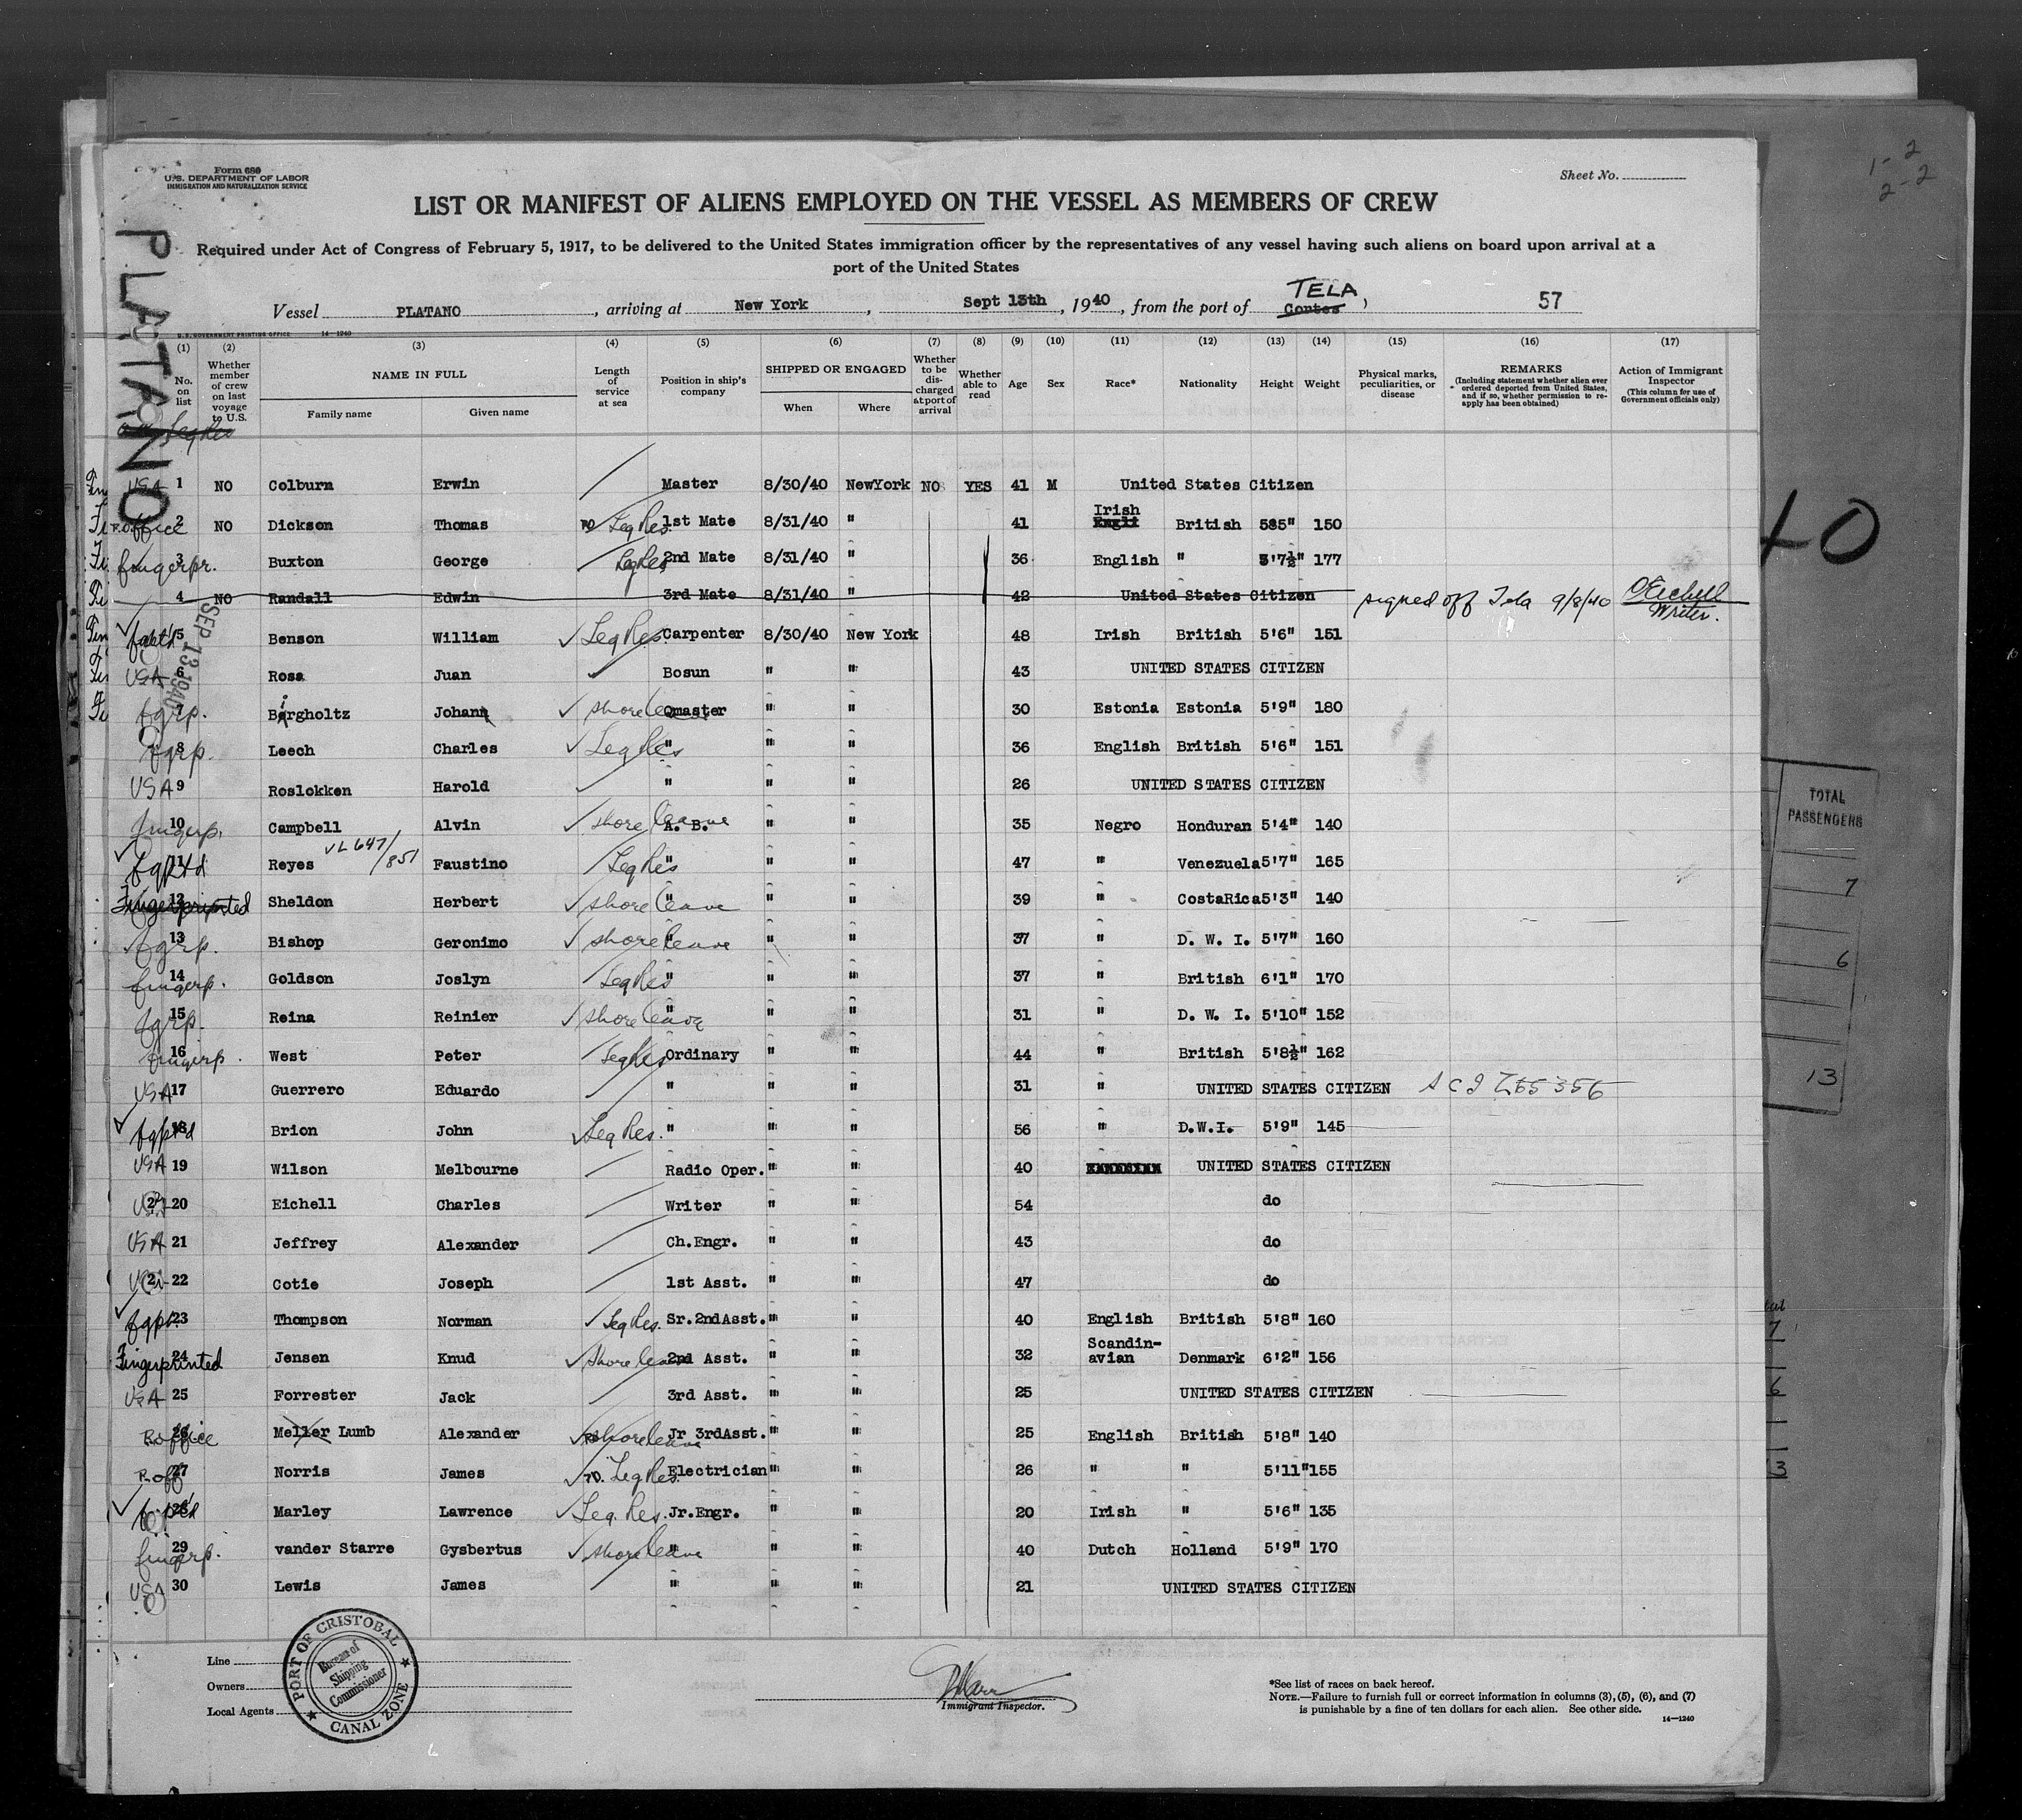 Form 680
U.S. DEPARTMENT OF LABOR
IMMIGRATION AND NATURALIZATION SERVICE
Sheet No.
1-2
2-2
PLATANO
LIST OR MANIFEST OF ALIENS EMPLOYED ON THE VESSEL AS MEMBERS OF CREW
Required under Act of Congress of February 5, 1917, to be delivered to the United States immigration officer by the representatives of any vessel having such aliens on board upon arrival at a
port of the United States
Vessel PLATANO, arriving at New York, Sept 13th, 1940, from the port of Cortes TELA, 57
U.S. GOVERNMENT PRINTING OFFICE 14-1240
(1) (2) (3) (4) (5) (6) (7) (8) (9) (10) (11) (12) (13) (14) (15) (16) (17)
No. on list
Whether member of crew on last voyage to U.S.
NAME IN FULL
Family name Given name
Length of service at sea
Position in ship's company
SHIPPED OR ENGAGED
When Where
Whether to be discharged at port of arrival
Whether able to read
Age Sex Race* Nationality Height Weight
Physical marks, peculiarities, or disease
REMARKS
(Including statement whether alien ever ordered deported from United States, and if so, whether permission to reapply has been obtained)
Action of Immigrant Inspector
(This column for use of Government officials only)
USA 1 NO Colburn Erwin Master 8/30/40 NewYork NO YES 41 M United States Citizen
F. Office 2 NO Dickson Thomas Leg Res 1st Mate 8/31/40 " 41 Engli Irish British 585" 150
fingerpr. 3 Buxton George Leg Res 2nd Mate 8/31/40 " 36 English " 5'7½" 177
4 NO Randall Edwin 3rd Mate 8/31/40 " 42 United States Citizen signed off Tela 9/8/40 CEichell Writer.
5 Benson William Leg Res. Carpenter 8/30/40 New York 48 Irish British 5'6" 151
USA 6 Rosa Juan Bosun " " 43 UNITED STATES CITIZEN
fgrp. 7 Bargholtz Johann shore leave Qmaster " " 30 Estonia Estonia 5'9" 180
fgrp. 8 Leech Charles Leg Res " " " 36 English British 5'6" 151
USA 9 Roslokken Harold " " " 26 UNITED STATES CITIZEN
fingerp. 10 Campbell Alvin shore leave A. B. " " 35 Negro Honduran 5'4" 140
11 Reyes VL 647/851 Faustino Leg Res " " " 47 " Venezuela 5'7" 165
Fingerprinted 12 Sheldon Herbert shore leave " " " 39 " CostaRica 5'3" 140
fgrp. 13 Bishop Geronimo shore leave " " " 37 " D. W. I. 5'7" 160
fingerp. 14 Goldson Joslyn Leg Res " " " 37 " British 6'1" 170
fgrp. 15 Reina Reinier shore leave " " " 31 " D. W. I. 5'10" 152
fingerp. 16 West Peter Leg Res Ordinary " " 44 " British 5'8½" 162
USA 17 Guerrero Eduardo " " " 31 " UNITED STATES CITIZEN
18 Brion John Leg Res. " " " 56 " D.W.I. 5'9" 145
USA 19 Wilson Melbourne Radio Oper. " " 40 UNITED STATES CITIZEN
20 Eichell Charles Writer " " 54 do
USA 21 Jeffrey Alexander Ch.Engr. " " 43 do
22 Cotie Joseph 1st Asst. " " 47 do
fgpt. 23 Thompson Norman Leg Res. Sr.2ndAsst. " " 40 English British 5'8" 160
Fingerprinted 24 Jensen Knud shore leave 2nd Asst. " " 32 Scandin-avian Denmark 6'2" 156
USA 25 Forrester Jack 3rd Asst. " " 25 UNITED STATES CITIZEN
26 Meller Lumb Alexander shore leave Jr 3rdAsst. " " 25 English British 5'8" 140
27 Norris James Leg Res. Electrician " " 26 " " 5'11" 155
28 Marley Lawrence Leg. Res. Jr.Engr. " " 20 Irish " 5'6" 135
fingerp. 29 vander Starre Gysbertus shore leave " " " 40 Dutch Holland 5'9" 170
USA 30 Lewis James " " " 21 UNITED STATES CITIZEN
SEP 13 1940
Line
Owners
Local Agents
PORT OF CRISTOBAL
Bureau of Shipping Commissioner
CANAL ZONE
Immigrant Inspector.
*See list of races on back hereof.
NOTE.—Failure to furnish full or correct information in columns (3), (5), (6), and (7)
is punishable by a fine of ten dollars for each alien. See other side.
14—1240
40
TOTAL PASSENGERS
7
6
13